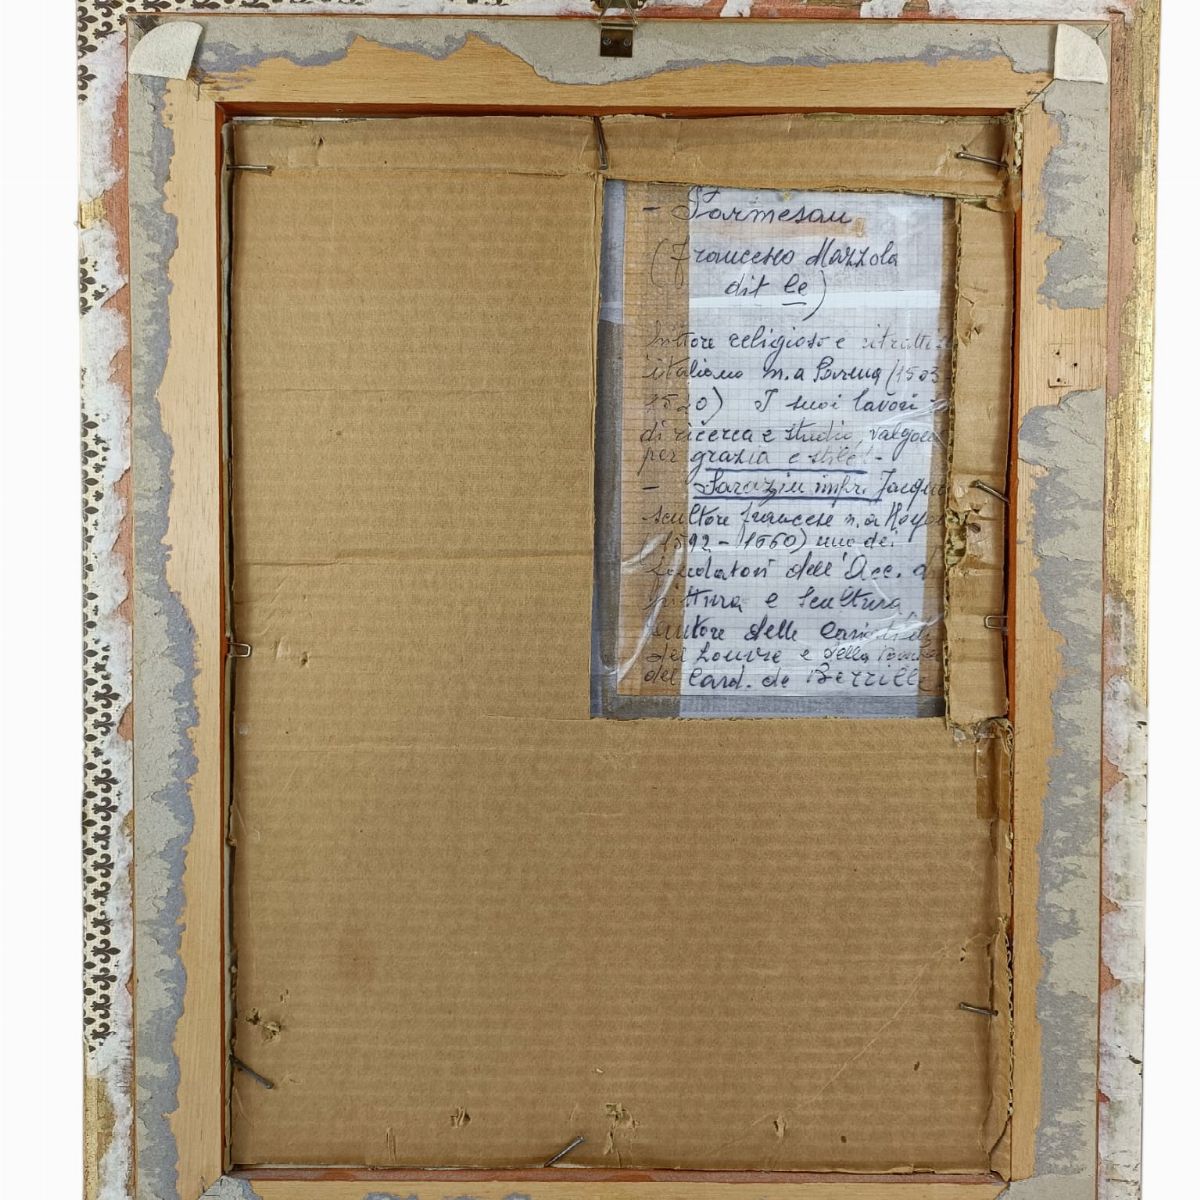 - Parmesan
(Francesco Mazzola
dit le)
Pittore religioso e ritratti
italiano n. a Parma (1503
1520) I suoi lavori
di ricerca e studio, valgono
per grazia e stile! -
- Sarazin impr. Jacques
scultore francese n. a Noyon
(1592 - 1660) uno dei
fondatori dell'Acc. di
pittura e scultura,
autore delle Cariatidi
del Louvre e della
del Card. de Berulle